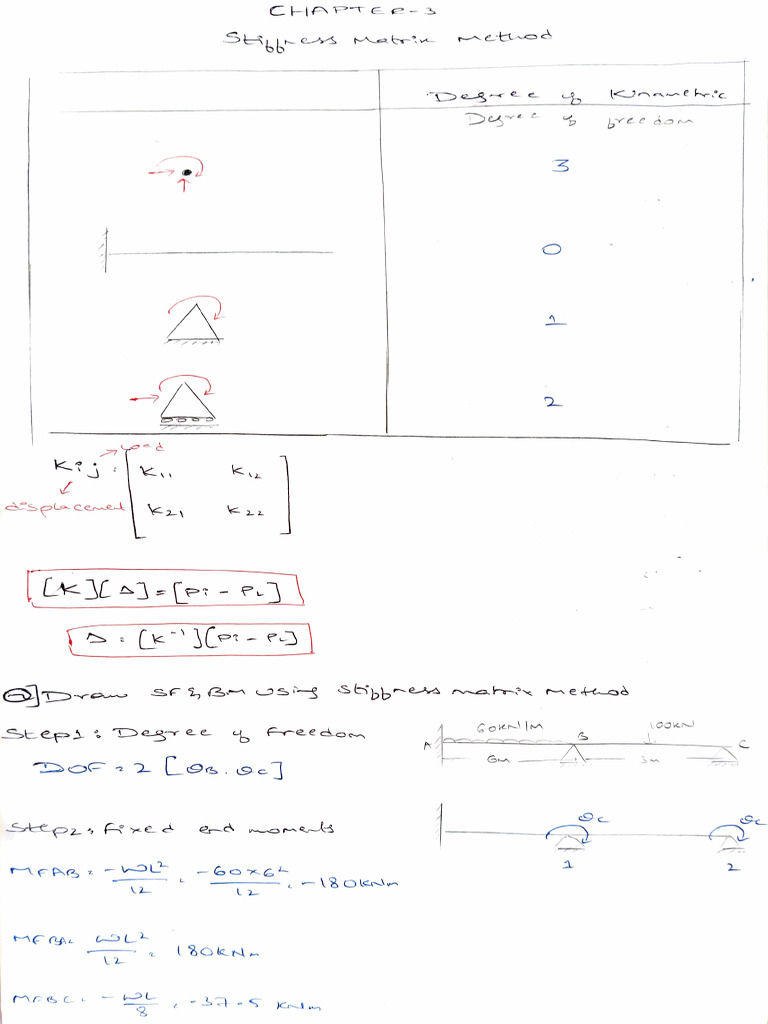 CHAPTER-3
Stiffness Matrix Method
Degree of Kinametric
Degree of freedom
3
0
1
2
Kij = [K11 K12
K21 K22]
load
displacement
[K][Δ] = [Pi - PL]
Δ = [K⁻¹][Pi - PL]
Q] Draw SF & BM using stiffness matrix method
Step1: Degree of Freedom
DOF = 2 [θB, θC]
A 60KN/M B 100KN C
6m 3m
Step2: Fixed end moments
θC θC
1 2
MFAB = -WL²/12 = -60×6²/12 = -180KNm
MFBA = WL²/12 = 180KNm
MFBC = -WL/8 = -37.5 KNm